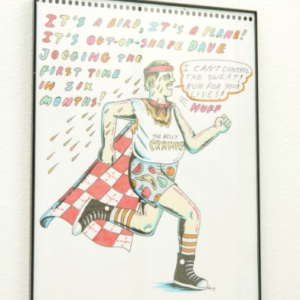 IT'S A BIRD, IT'S A PLANE!
IT'S OUT-OF-SHAPE DAVE
JOGGING THE
FIRST TIME
IN SIX
MONTHS!
I CAN'T CONTROL
THE SWEAT!
RUN FOR YOUR
LIVES!
HUFF
THE BELLY